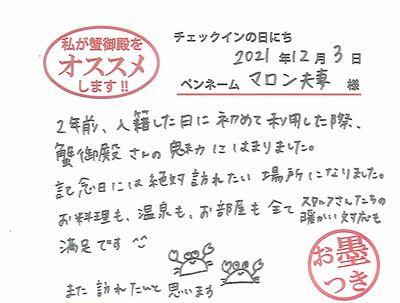 私が蟹御殿を
オススメ
します!!
チェックインの日にち
2021年12月3日
ペンネーム マロン夫妻 様
2年前、入籍した日に初めて利用した際、
蟹御殿さんの魅力にはまりました。
記念日には絶対訪れたい場所になりました。
お料理も、温泉も、お部屋も全て スタッフさんたちの暖かい対応も
満足です^^
また訪れたいと思います
お墨
つき